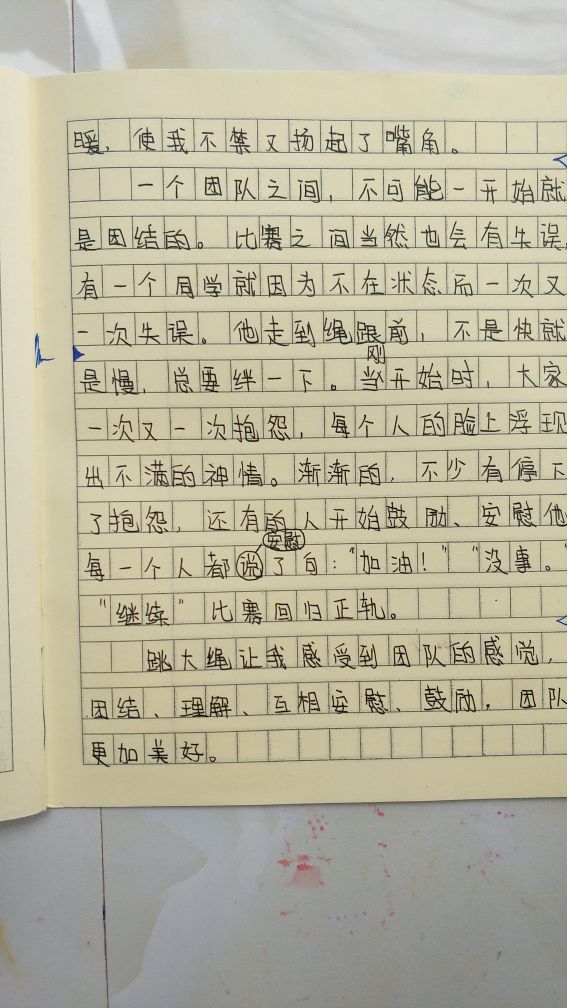 暖，使我不禁又扬起了嘴角。
一个团队之间，不可能一开始就
是团结的。比赛之间当然也会有失误，
有一个同学就因为不在状态而一次又
一次失误。他走到绳跟前，不是快就
刚
是慢，总要绊一下。当开始时，大家
一次又一次抱怨，每个人的脸上浮现
出不满的神情。渐渐的，不少有停下
了抱怨，还有的人开始鼓励、安慰他
安慰
每一个人都说了句：“加油！”“没事。”
“继续”比赛回归正轨。
跳大绳让我感受到团队的感觉，
团结、理解、互相安慰、鼓励，团队
更加美好。